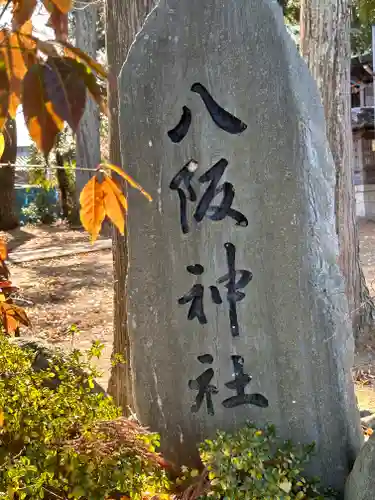 八阪神社